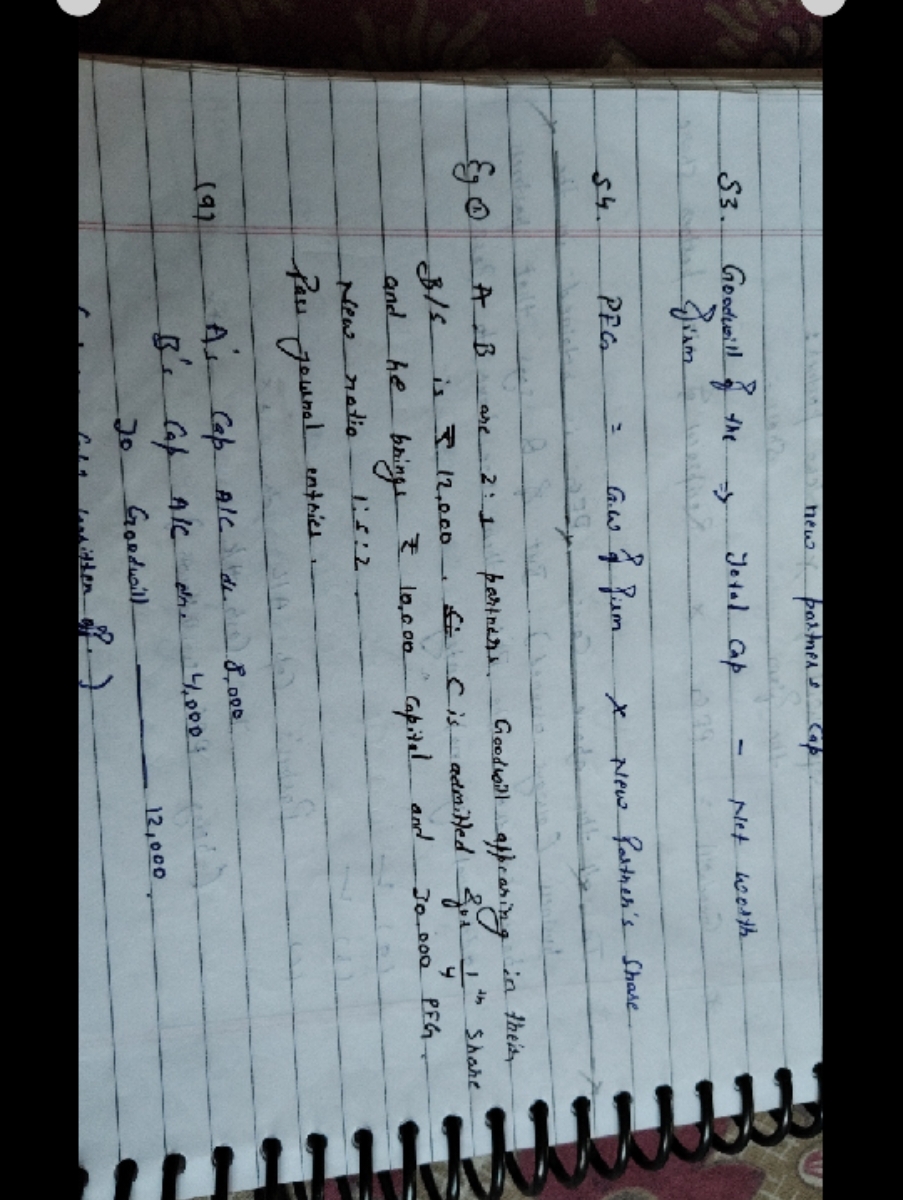 new partner's cap
S3. Goodwill of the ⇒ Total Cap - Net worth
firm
S4. PFG = G.W of firm x New Partner's Share
Eg ① A, B are 2:1 partners. Goodwill appearing in their
B/S is ₹ 12,000. C is admitted for 1/4 th share
and he brings ₹ 10,000 capital and 30,000 PFG.
New ratio 1:5:2.
Pass journal entries.
(a) A's Cap A/c dr. 8,000
B's Cap A/c dr. 4,000
To Goodwill 12,000.
written off.)